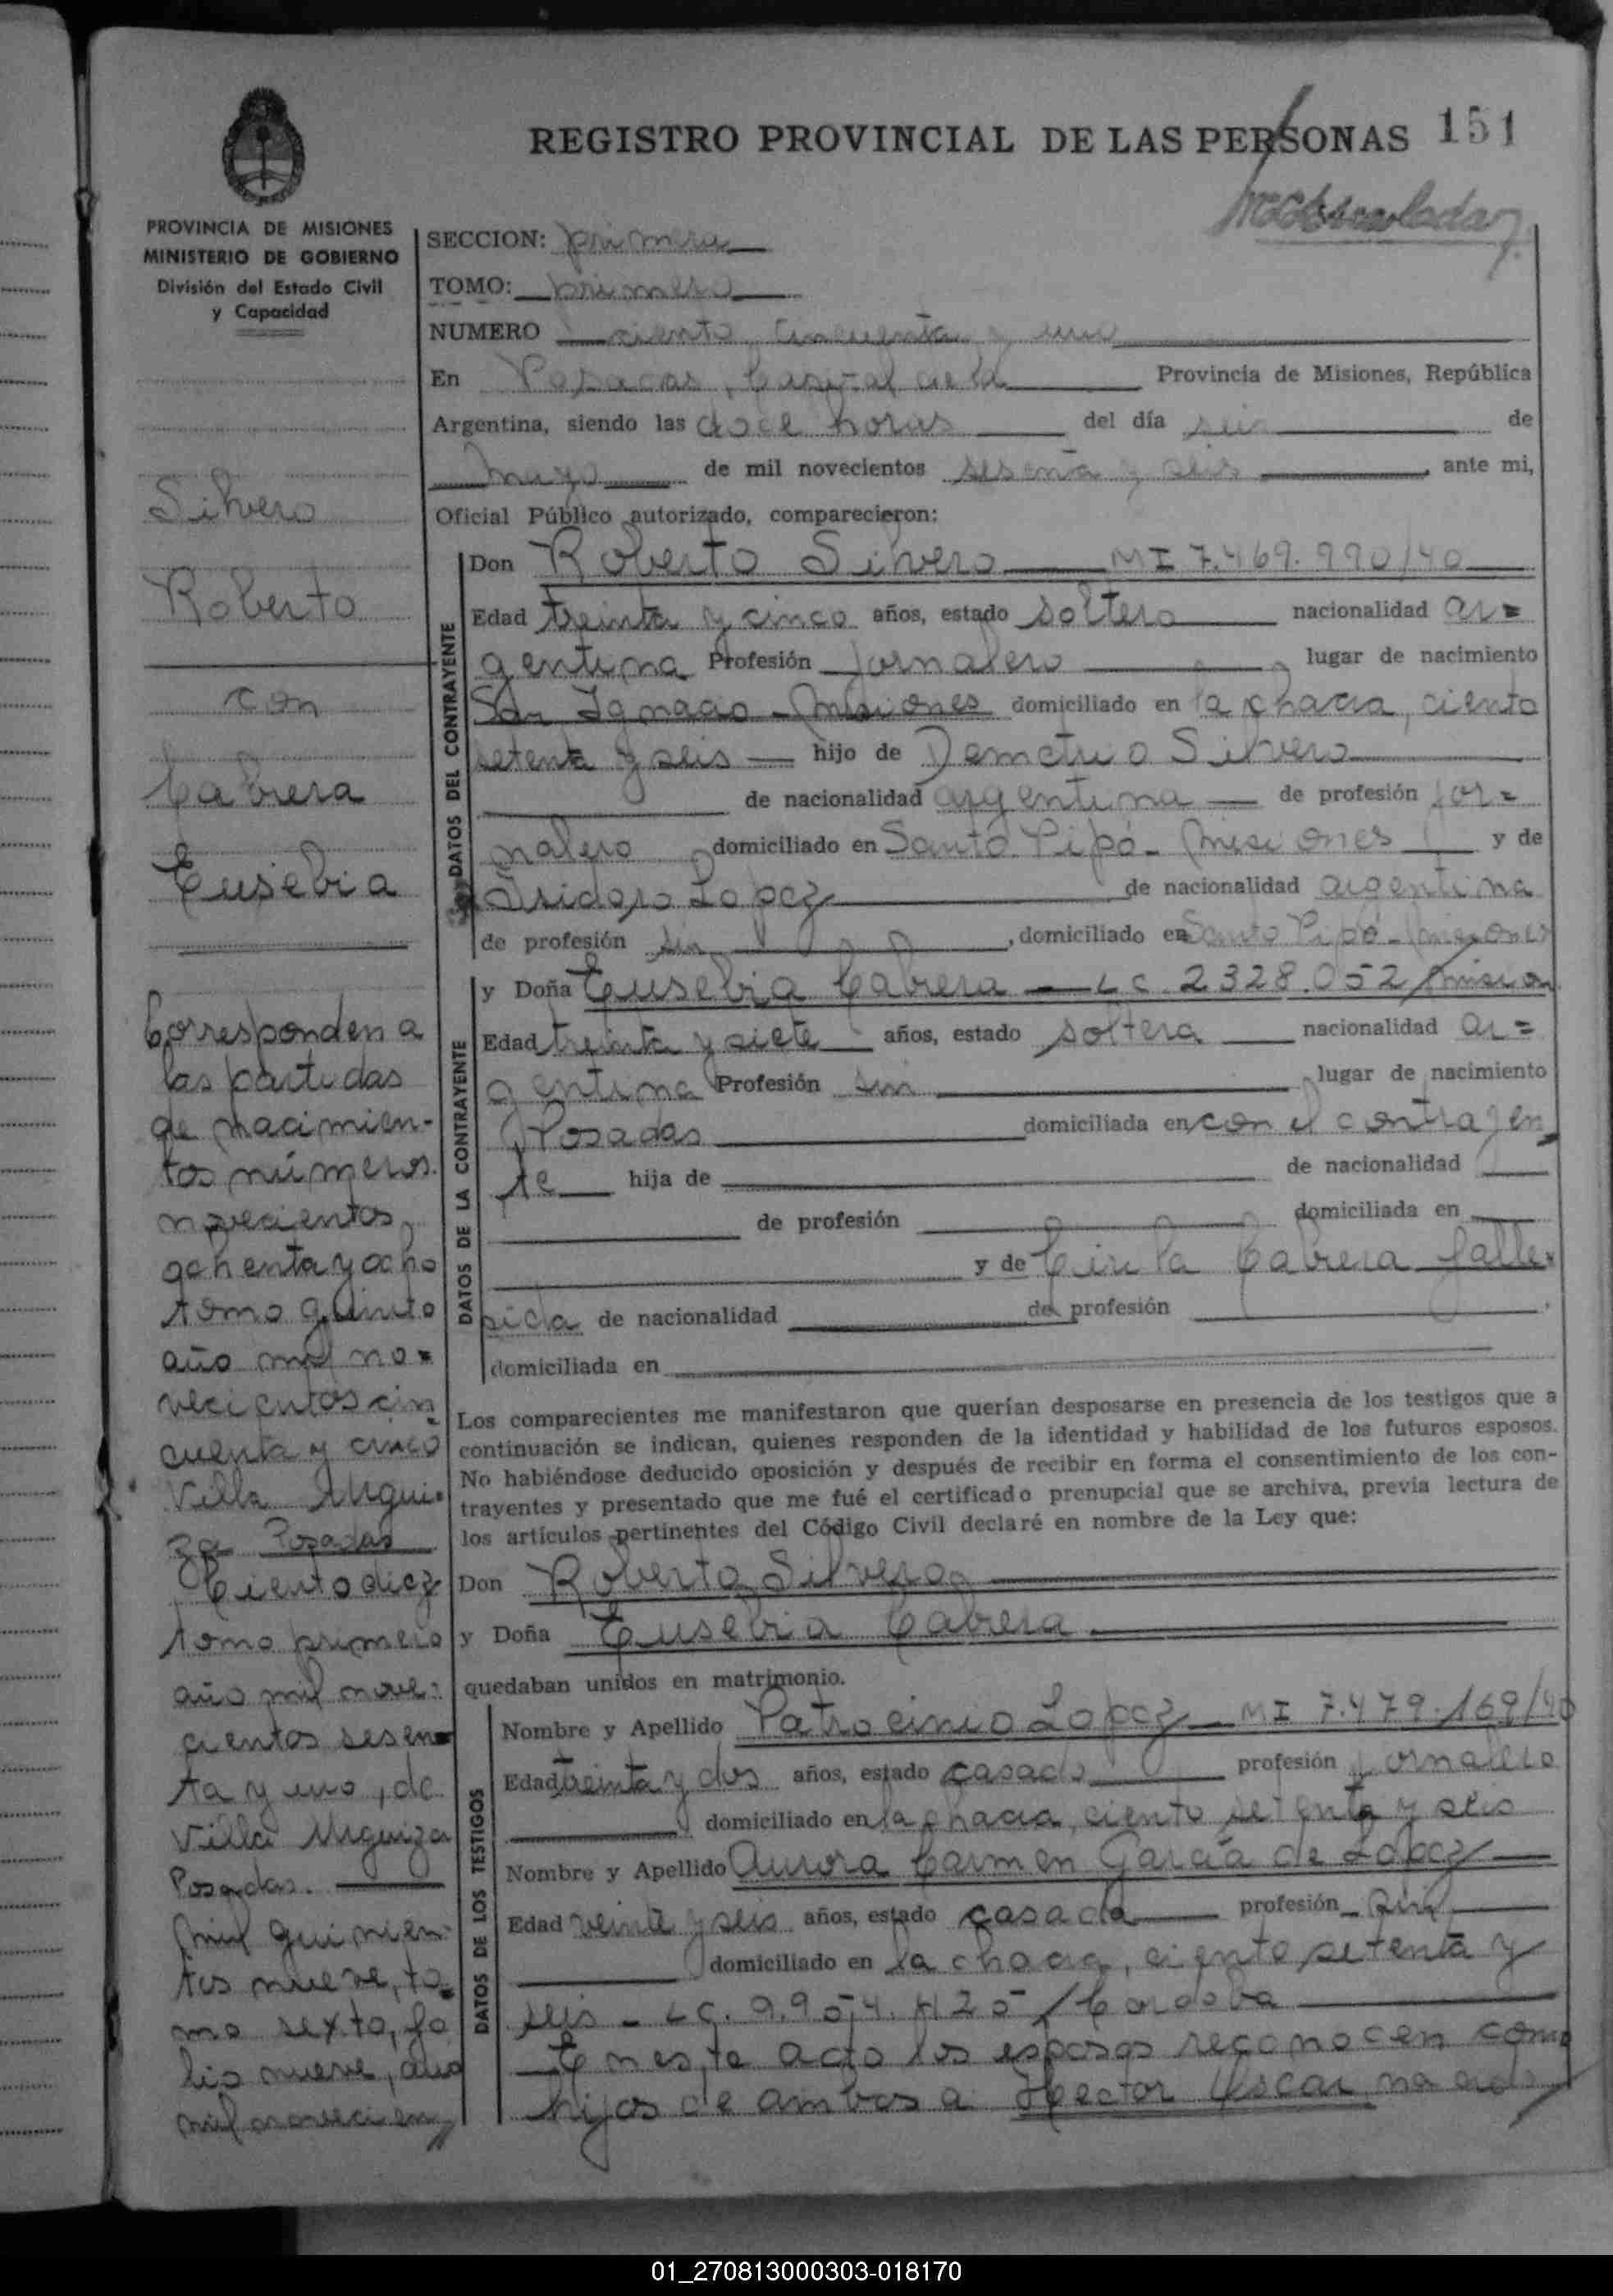 REGISTRO PROVINCIAL DE LAS PERSONAS 151
PROVINCIA DE MISIONES
MINISTERIO DE GOBIERNO
División del Estado Civil
y Capacidad
Silvero
Roberto
con
Cabrera
Eusebia
Corresponden a
las partidas
de nacimien-
tos números
novecientos
ochenta y ocho
tomo quinto
año mil no=
vecientos cin
cuenta y cinco
Villa Urqui-
za Posadas
Ciento diez
tomo primero
año mil nove-
cientos sesen-
ta y uno, de
Villa Urquiza
Posadas.
Mil quinien-
tos nueve, to-
mo sexto, fo
lio nueve, año
mil novecien
SECCION: primera
TOMO: primero
NUMERO ciento cincuenta y uno
En Posadas, Capital de la Provincia de Misiones, República
Argentina, siendo las doce horas del día seis de
mayo de mil novecientos sesenta y seis, ante mi,
Oficial Público autorizado, comparecieron:
DATOS DEL CONTRAYENTE
Don Roberto Silvero MI 7.469.990/40
Edad treinta y cinco años, estado soltero nacionalidad ar=
gentina Profesión jornalero lugar de nacimiento
San Ignacio - Misiones domiciliado en la chacra, ciento
setenta y seis hijo de Demetrio Silvero
de nacionalidad argentina de profesión jor=
nalero domiciliado en Santo Pipó - Misiones y de
Isidora Lopez de nacionalidad argentina
de profesión sin, domiciliado en Santo Pipó - Misiones
DATOS DE LA CONTRAYENTE
y Doña Eusebia Cabrera - LC. 2328.052/
Edad treinta y siete años, estado soltera nacionalidad ar=
gentina Profesión sin lugar de nacimiento
Posadas domiciliada en con el contrayen
te hija de de nacionalidad
de profesión domiciliada en
y de Cirila Cabrera falle-
cida de nacionalidad de profesión
domiciliada en
Los comparecientes me manifestaron que querían desposarse en presencia de los testigos que a
continuación se indican, quienes responden de la identidad y habilidad de los futuros esposos.
No habiéndose deducido oposición y después de recibir en forma el consentimiento de los con-
trayentes y presentado que me fué el certificado prenupcial que se archiva, previa lectura de
los artículos pertinentes del Código Civil declaré en nombre de la Ley que:
Don Roberto Silvero
y Doña Eusebia Cabrera
quedaban unidos en matrimonio.
DATOS DE LOS TESTIGOS
Nombre y Apellido Patrocinio Lopez - MI 7.479.169/40
Edad treinta y dos años, estado casado profesión jornalero
domiciliado en la chacra, ciento setenta y seis
Nombre y Apellido Aurora Carmen García de Lopez
Edad veinte y seis años, estado casada profesión sin
domiciliado en la chacra, ciento setenta y
seis - LC. 9.954.120/Cordoba
En este acto los esposos reconocen como
hijos de ambos a Hector Oscar nacido
01_270813000303-018170